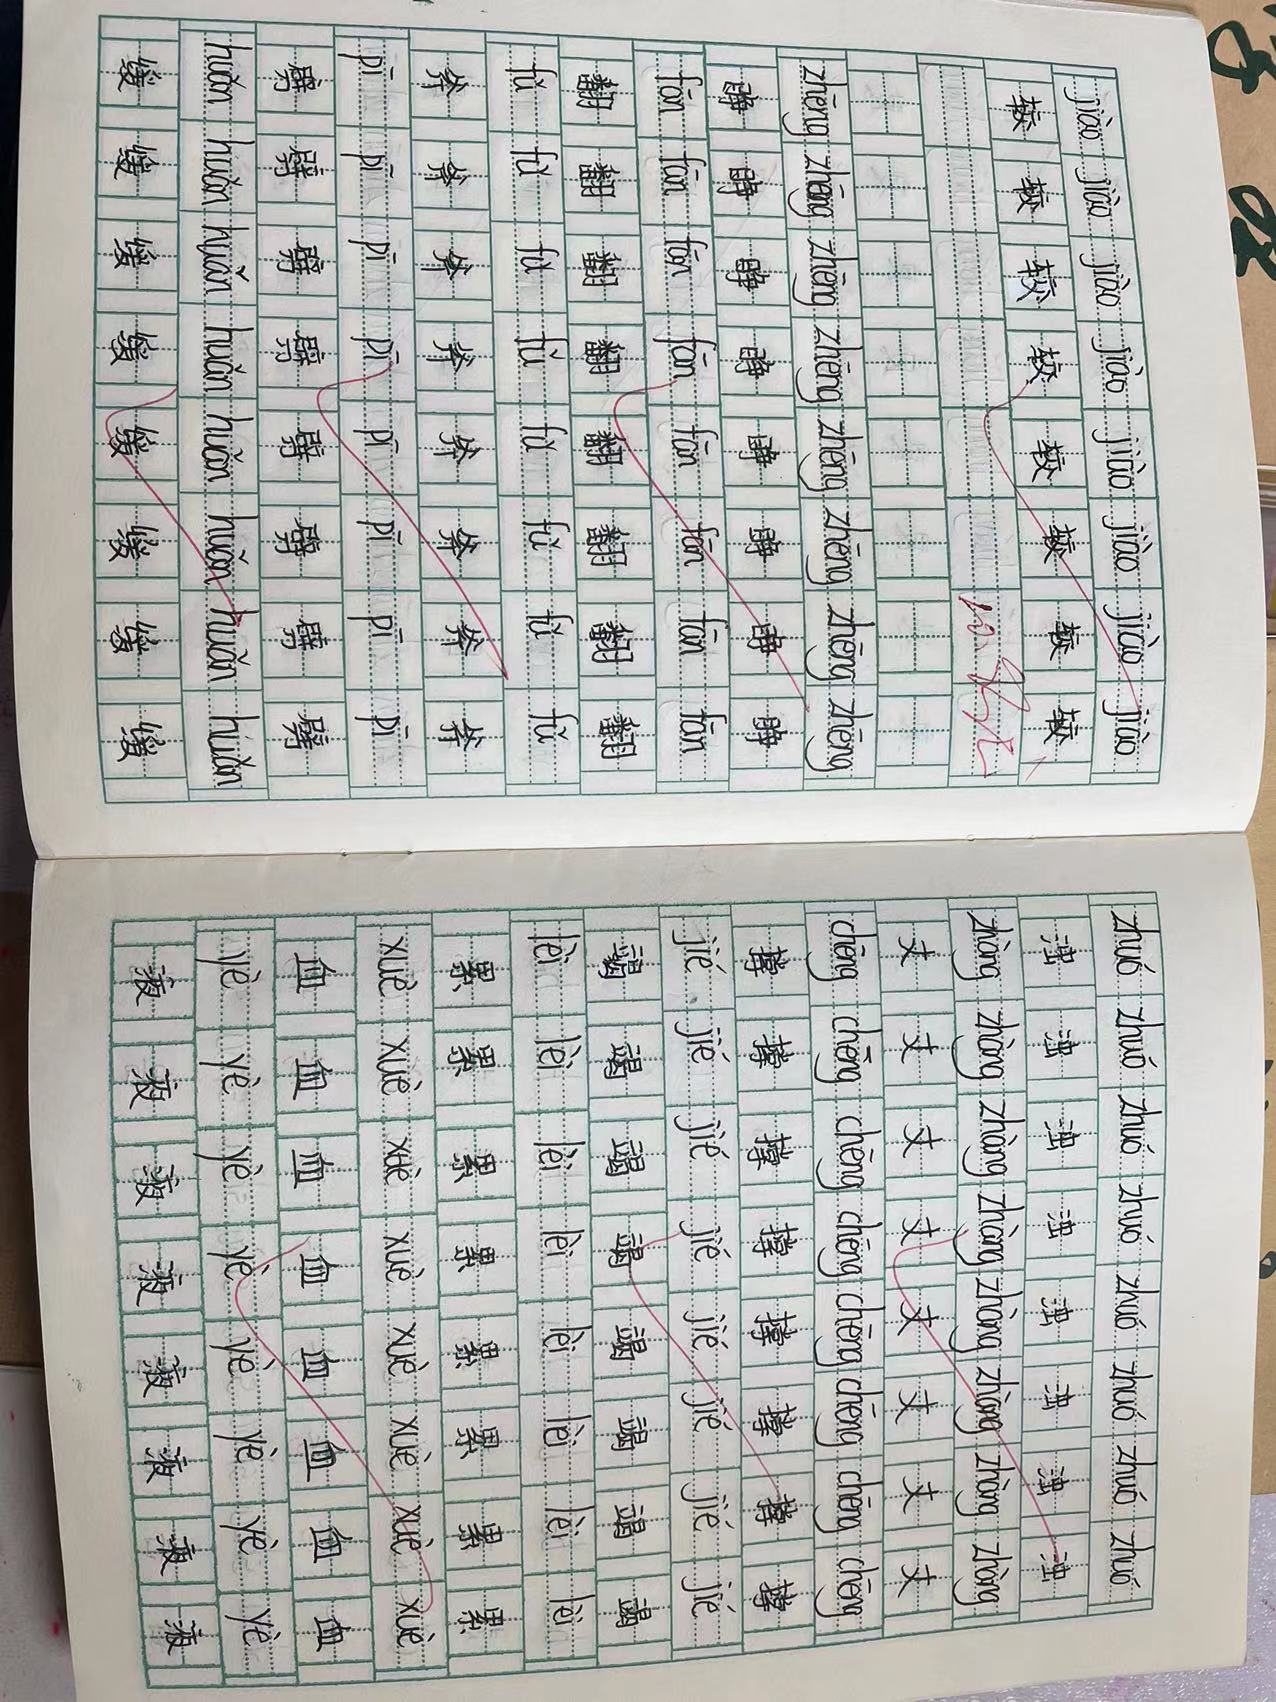 jiào jiào jiào jiào jiào jiào jiào jiào
较 较 较 较 较 较 较 较
zhēng zhēng zhēng zhēng zhēng zhēng zhēng zhēng
睁 睁 睁 睁 睁 睁 睁 睁
fān fān fān fān fān fān fān fān
翻 翻 翻 翻 翻 翻 翻 翻
fǔ fǔ fǔ fǔ fǔ fǔ fǔ fǔ
斧 斧 斧 斧 斧 斧 斧 斧
pī pī pī pī pī pī pī pī
劈 劈 劈 劈 劈 劈 劈 劈
huǎn huǎn huǎn huǎn huǎn huǎn huǎn huǎn
缓 缓 缓 缓 缓 缓 缓 缓
zhuó zhuó zhuó zhuó zhuó zhuó zhuó zhuó
浊 浊 浊 浊 浊 浊 浊 浊
zhàng zhàng zhàng zhàng zhàng zhàng zhàng zhàng
丈 丈 丈 丈 丈 丈 丈 丈
chēng chēng chēng chēng chēng chēng chēng chēng
撑 撑 撑 撑 撑 撑 撑 撑
jié jié jié jié jié jié jié jié
竭 竭 竭 竭 竭 竭 竭 竭
lèi lèi lèi lèi lèi lèi lèi lèi
累 累 累 累 累 累 累 累
xuè xuè xuè xuè xuè xuè xuè xuè
血 血 血 血 血 血 血 血
yè yè yè yè yè yè yè yè
液 液 液 液 液 液 液 液